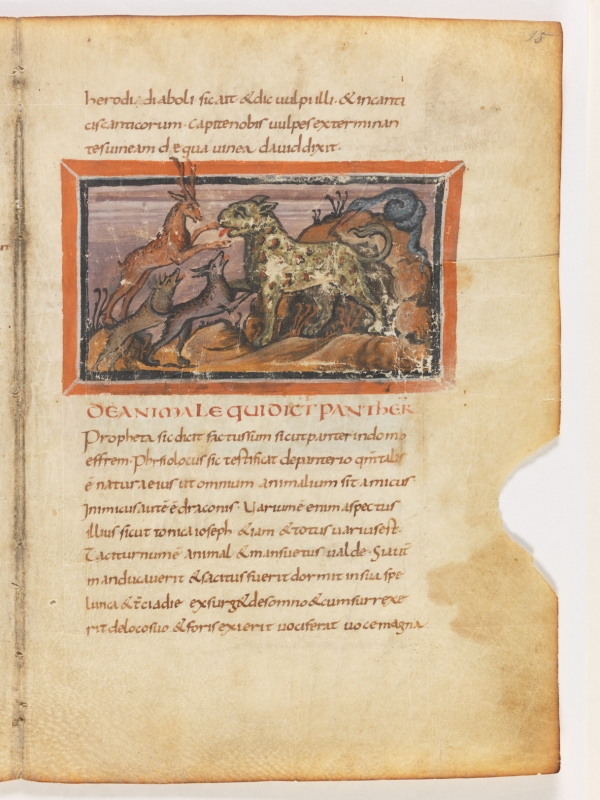 15
herodi; diaboli sic ait & dic uulpi illi· & in canti
cis canticorum· capite nobis uulpes exterminan
tes uineam de qua uinea dauid dixit·
DE ANIMALE QUI DICT PANTHER
Propheta sic dicit factus sum sicut panter in domo
effrem· Phisiolocus sic testificat de panterio qm̄ talis
ē natura eius ut omnium animalium sit amicus
Inimicus autē ē draconis· Uariumē enim aspectus
illius sicut tonica ioseph & iam & totus uarius est·
Taciturnumē animal & mansuetus ualde· Si aut̄
manducauerit & sacitus fuerit dormit in sua spe
lunca & t̄cia die exsurg& de somno & cum surrexe
rit de loco suo & foris exierit uociferat uoce magna